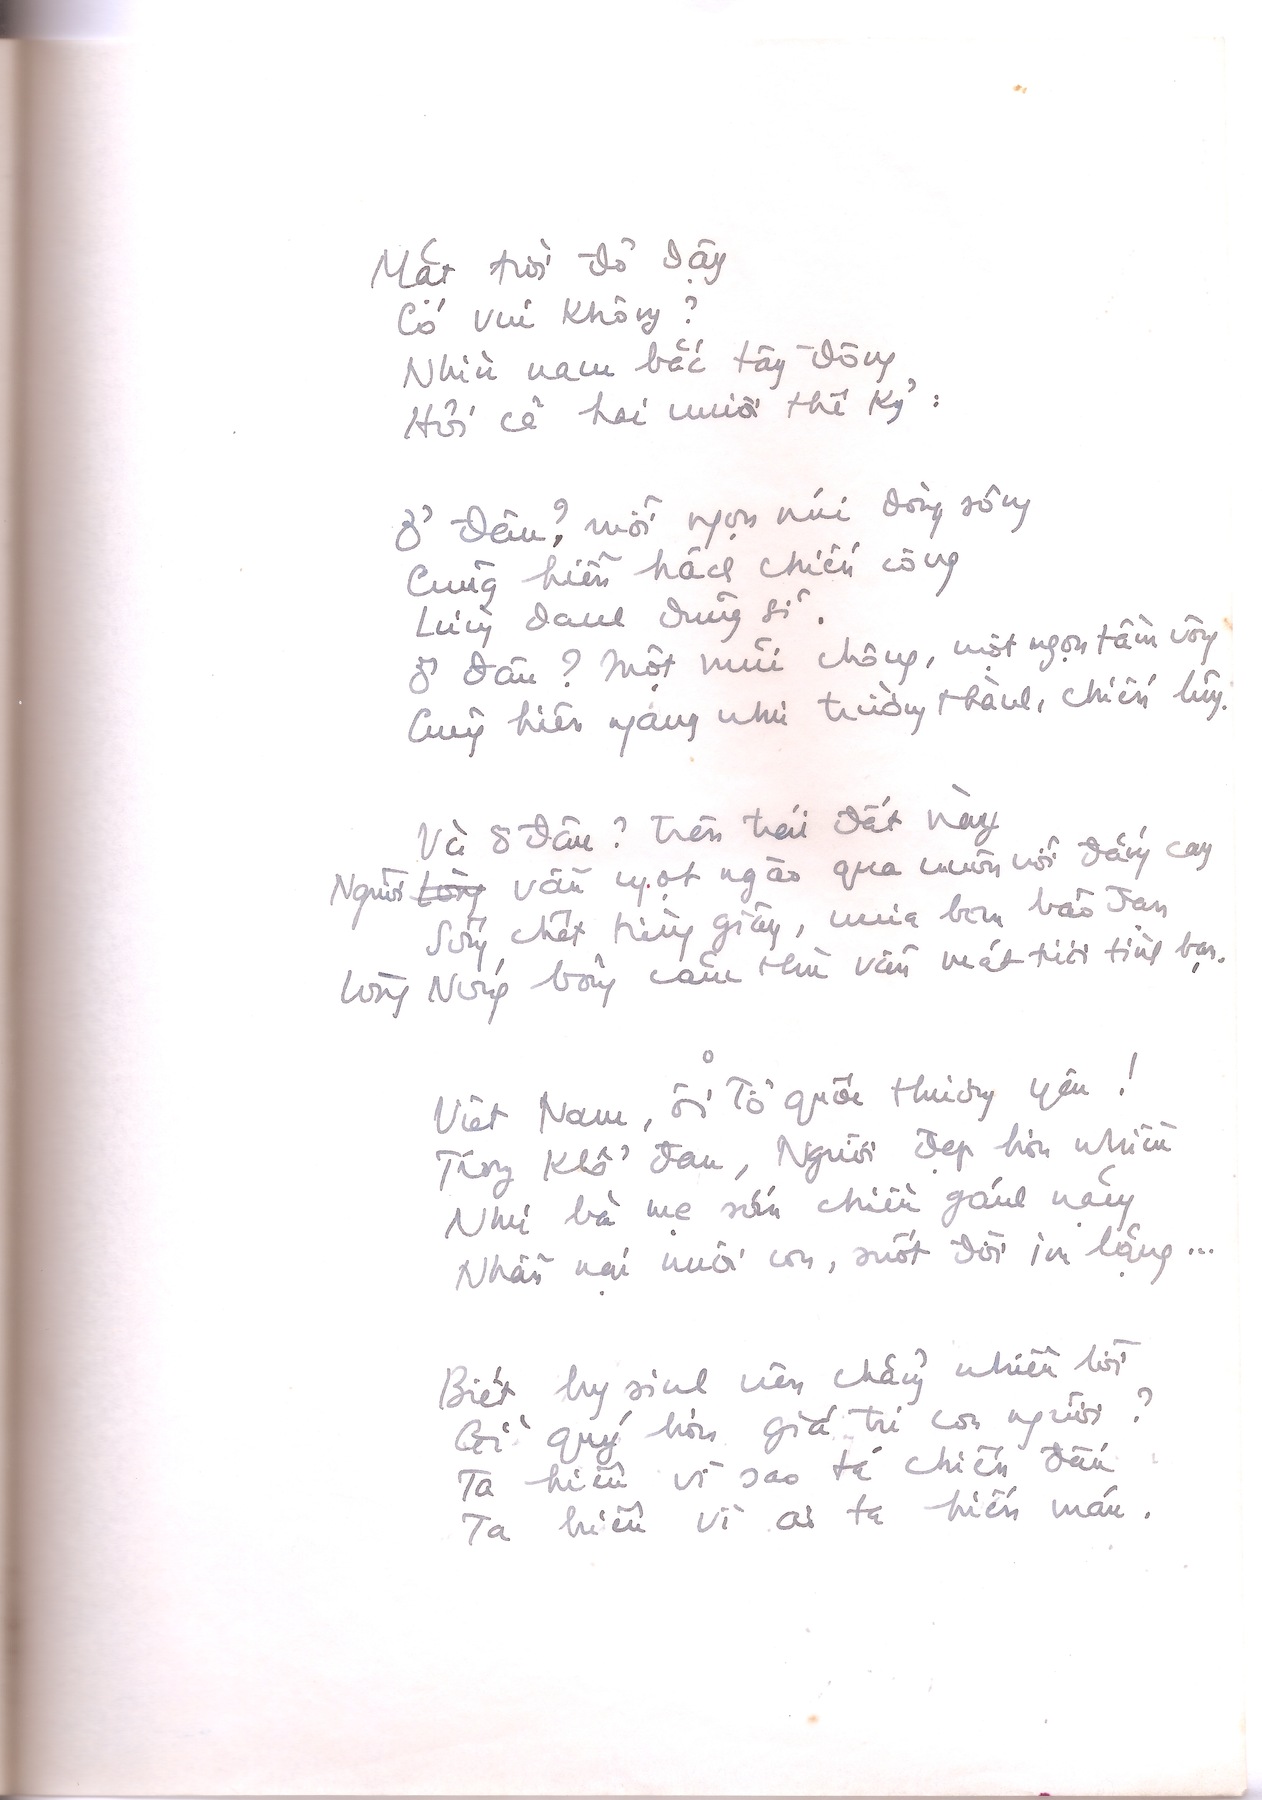 Mặt trời đỏ dậy
Có vui không?
Nhìn nam bắc tây đông
Hỏi cả hai mươi thế kỷ:
Ở đâu? mỗi ngọn núi dòng sông
Cũng hiển hách chiến công
Lừng danh dũng sĩ.
Ở đâu? Một mũi chông, một ngọn tầm vông
Cũng hiên ngang như trường thành, chiến lũy.
Và ở đâu? Trên trái đất này
Người Lòng vẫn ngọt ngào qua muôn nỗi đắng cay
Sống chết từng giây, mưa bom bão đạn
Lòng Nóng bỏng căm thù vẫn mát tươi tình bạn.
Việt Nam, ôi Tổ quốc thương yêu!
Trong khổ đau, Người đẹp hơn nhiều
Như bà mẹ sớm chiều gánh nặng
Nhẫn nại nuôi con, suốt đời im lặng...
Biết hy sinh nên chẳng nhiều lời
Gì quý hơn giá trị con người?
Ta hiểu vì sao ta chiến đấu
Ta hiểu vì ai ta hiến máu.